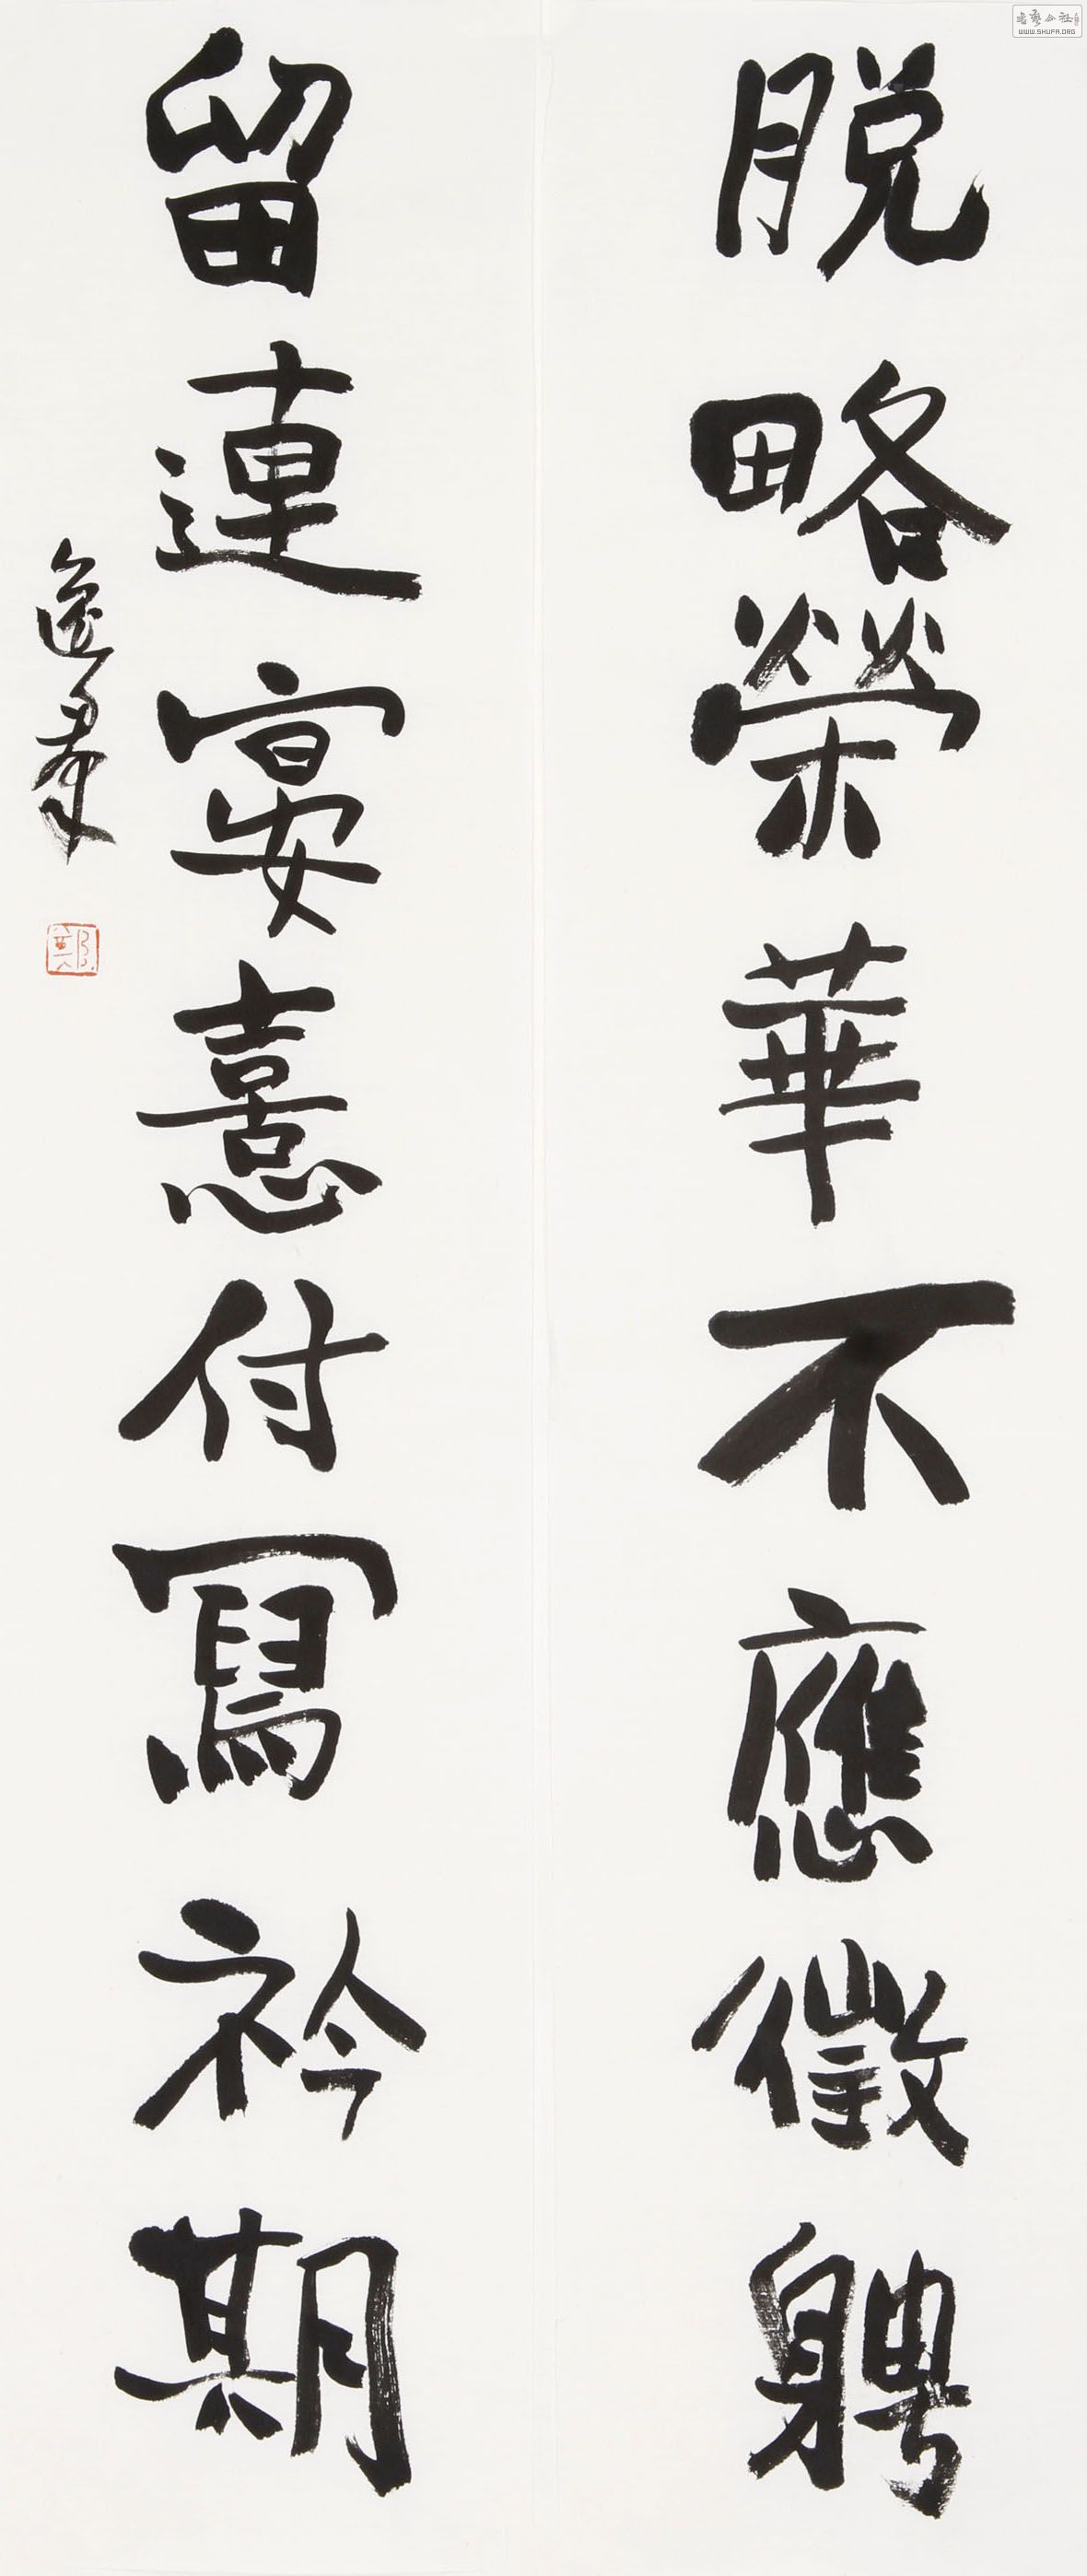 脱略榮華不應徵聘
留連宴憙付寫衿期
逸羣
鄭
WWW.SHUFA.ORG